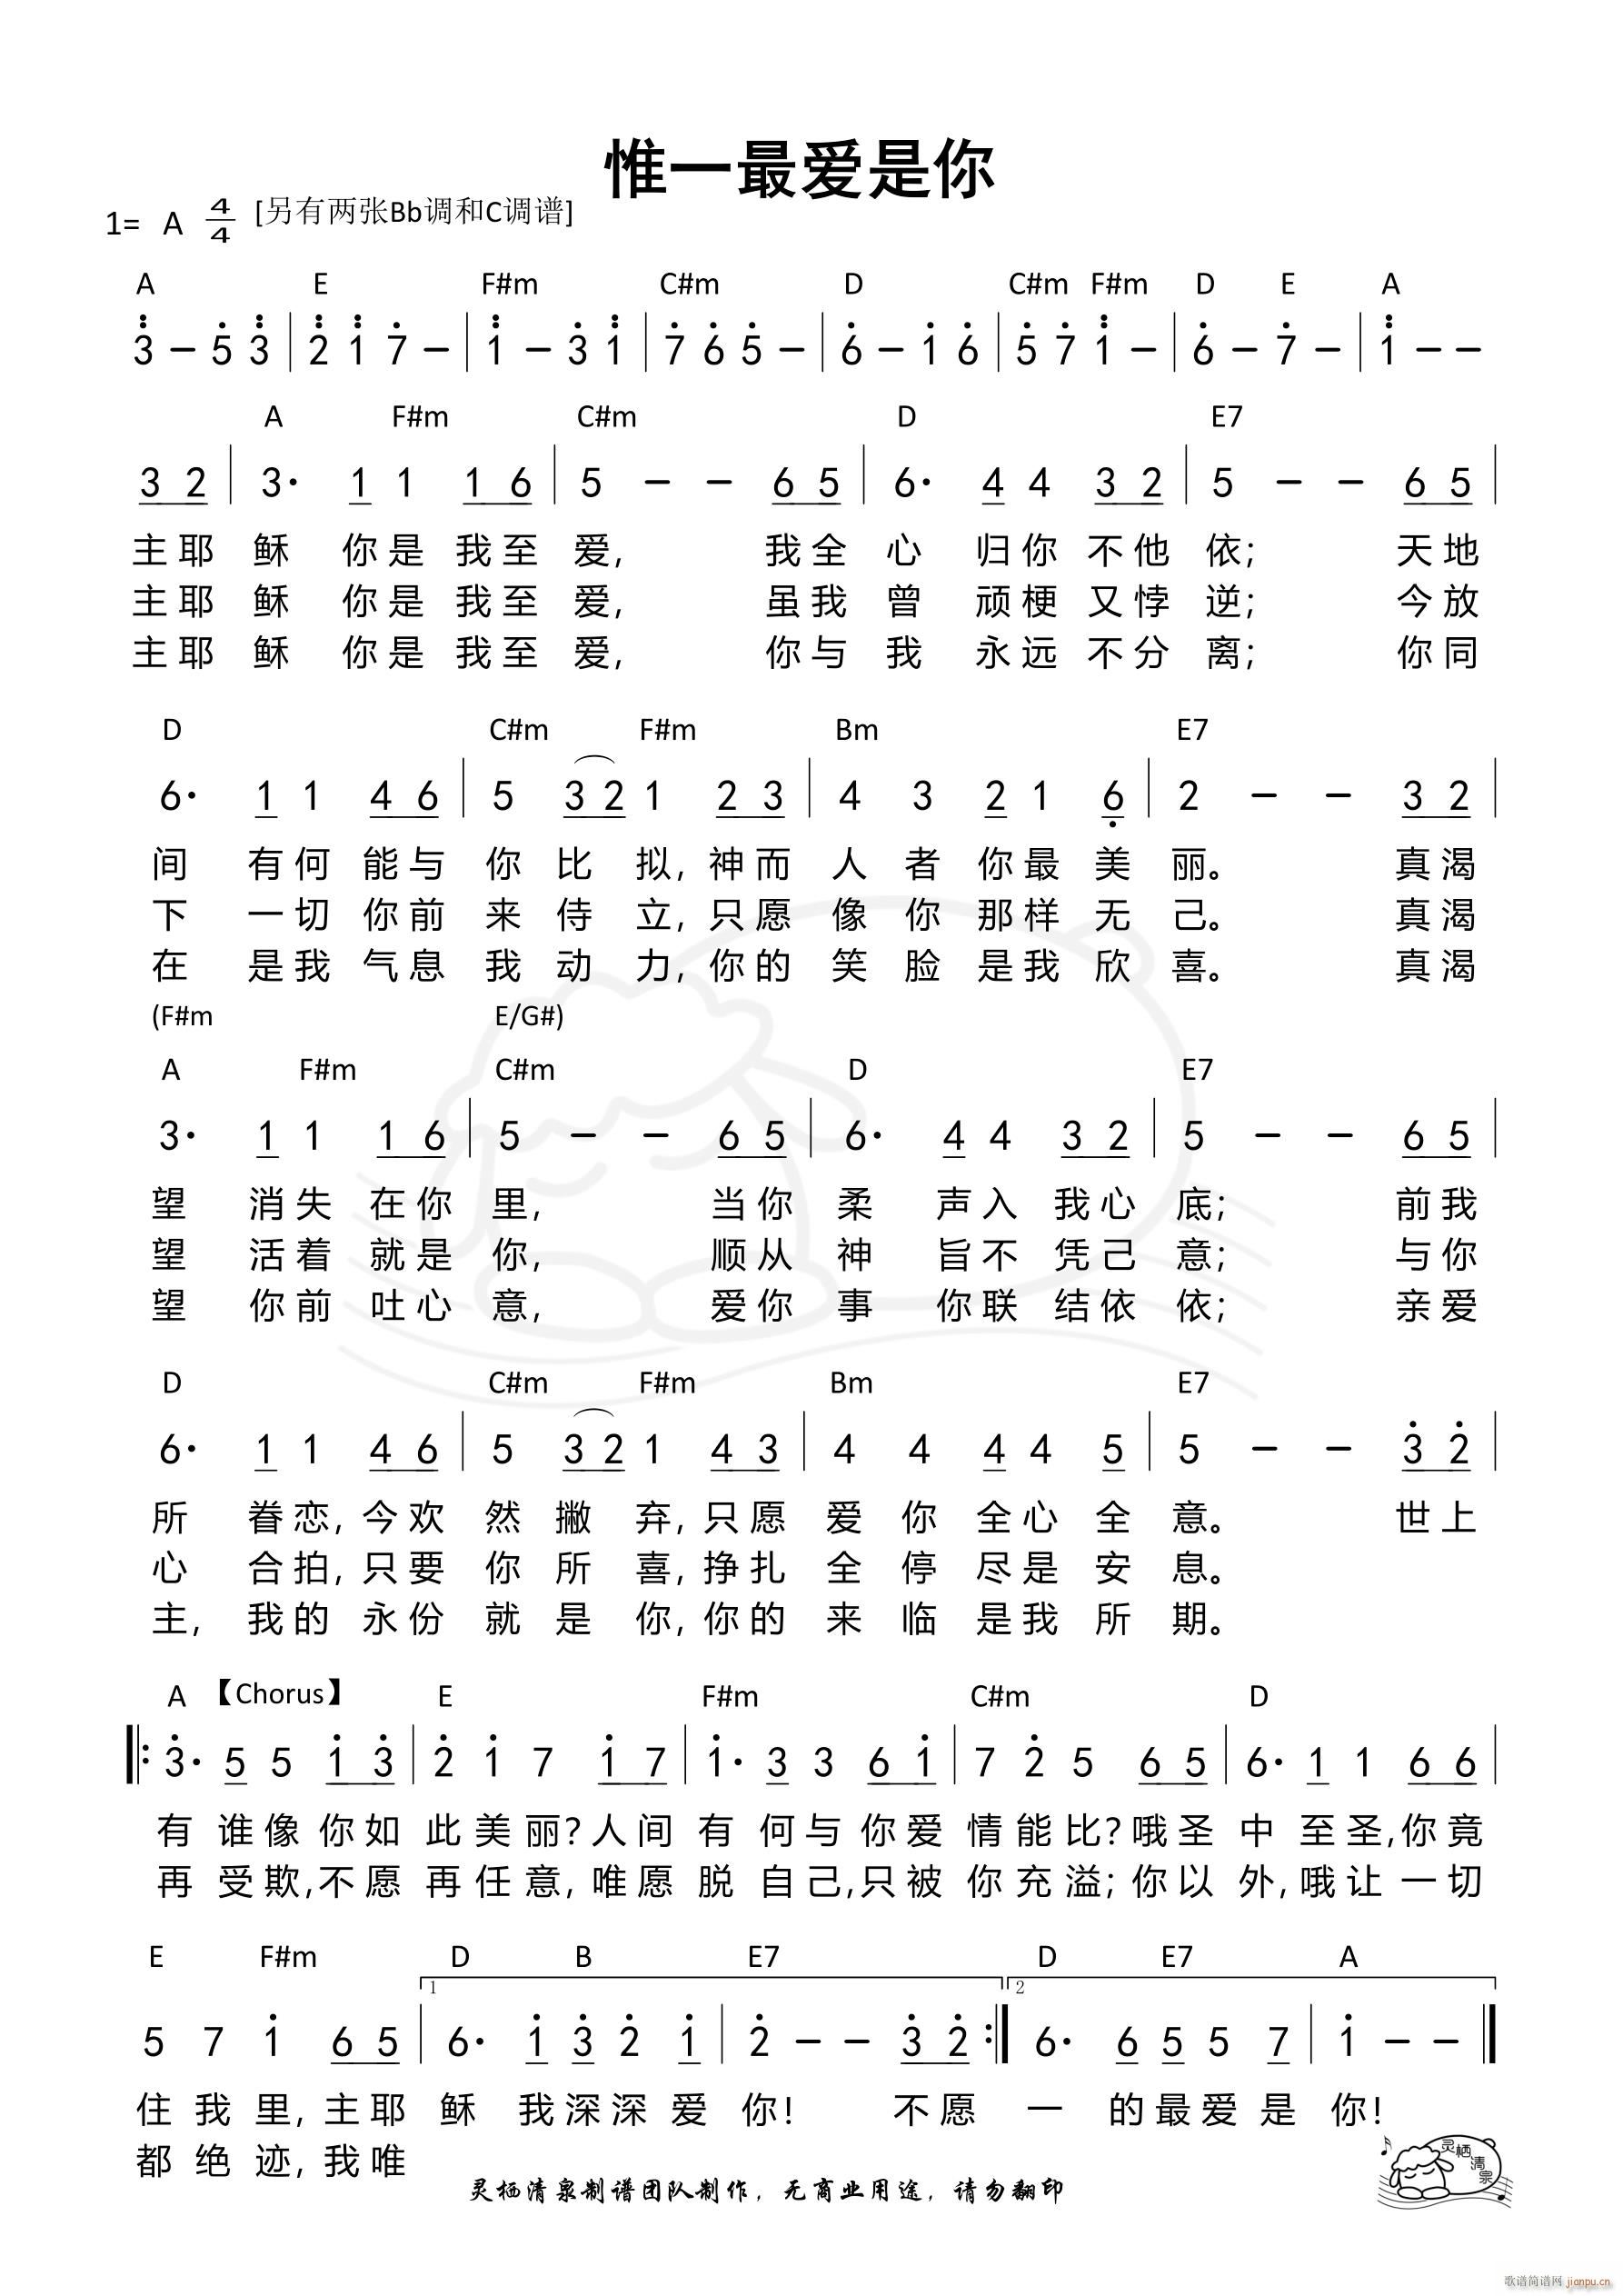 惟一最爱是你
1= A 4/4 [另有两张Bb调和C调谱]
A E F#m C#m D C#m F#m D E A
3 – 5 3 | 2 1 7 – | 1 – 3 1 | 7 6 5 – | 6 – 1 6 | 5 7 1 – | 6 – 7 – | 1 – –
A F#m C#m D E7
3 2 | 3· 1 1 1 6 | 5 – – 6 5 | 6· 4 4 3 2 | 5 – – 6 5 |
主耶 稣 你是 我至 爱, 我全 心 归你 不他 依; 天地
主耶 稣 你是 我至 爱, 虽我 曾 顽梗 又悖 逆; 今放
主耶 稣 你是 我至 爱, 你与 我 永远 不分 离; 你同
D C#m F#m Bm E7
6· 1 1 4 6 | 5 3 2 1 2 3 | 4 3 2 1 6 | 2 – – 3 2 |
间 有何 能与 你 比 拟, 神而 人 者 你最 美 丽。 真渴
下 一切 你前 来 侍 立, 只愿 像 你 那样 无 己。 真渴
在 是我 气息 我 动 力, 你的 笑 脸 是我 欣 喜。 真渴
(F#m E/G#)
A F#m C#m D E7
3· 1 1 1 6 | 5 – – 6 5 | 6· 4 4 3 2 | 5 – – 6 5 |
望 消失 在你 里, 当你 柔 声入 我心 底; 前我
望 活着 就是 你, 顺从 神 旨不 凭己 意; 与你
望 你前 吐心 意, 爱你 事 你联 结依 依; 亲爱
D C#m F#m Bm E7
6· 1 1 4 6 | 5 3 2 1 4 3 | 4 4 4 4 5 | 5 – – 3 2 |
所 眷恋, 今欢 然 撇 弃, 只愿 爱 你 全心 全 意。 世上
心 合拍, 只要 你 所 喜, 挣扎 全 停 尽是 安 息。
主, 我的 永份 就 是 你, 你的 来 临 是我 所 期。
A 【Chorus】 E F#m C#m D
3· 5 5 1 3 | 2 1 7 1 7 | 1· 3 3 6 1 | 7 2 5 6 5 | 6· 1 1 6 6 |
有 谁像 你如 此美丽? 人间 有 何与 你爱 情能比? 哦圣 中 至圣, 你竟
再 受欺, 不愿 再任意, 唯愿 脱 自己, 只被 你充溢; 你以 外, 哦让 一切
E F#m D B E7 D E7 A
1 2
5 7 1 6 5 | 6· 1 3 2 1 | 2 – – 3 2 :| 6· 6 5 5 7 | 1 – – ‖
住 我 里, 主耶 稣 我深深 爱 你! 不愿 一 的最爱 是 你!
都 绝 迹, 我唯
灵栖清泉制谱团队制作, 无商业用途, 请勿翻印
灵栖清泉
歌谱简谱网 jianpu.cn